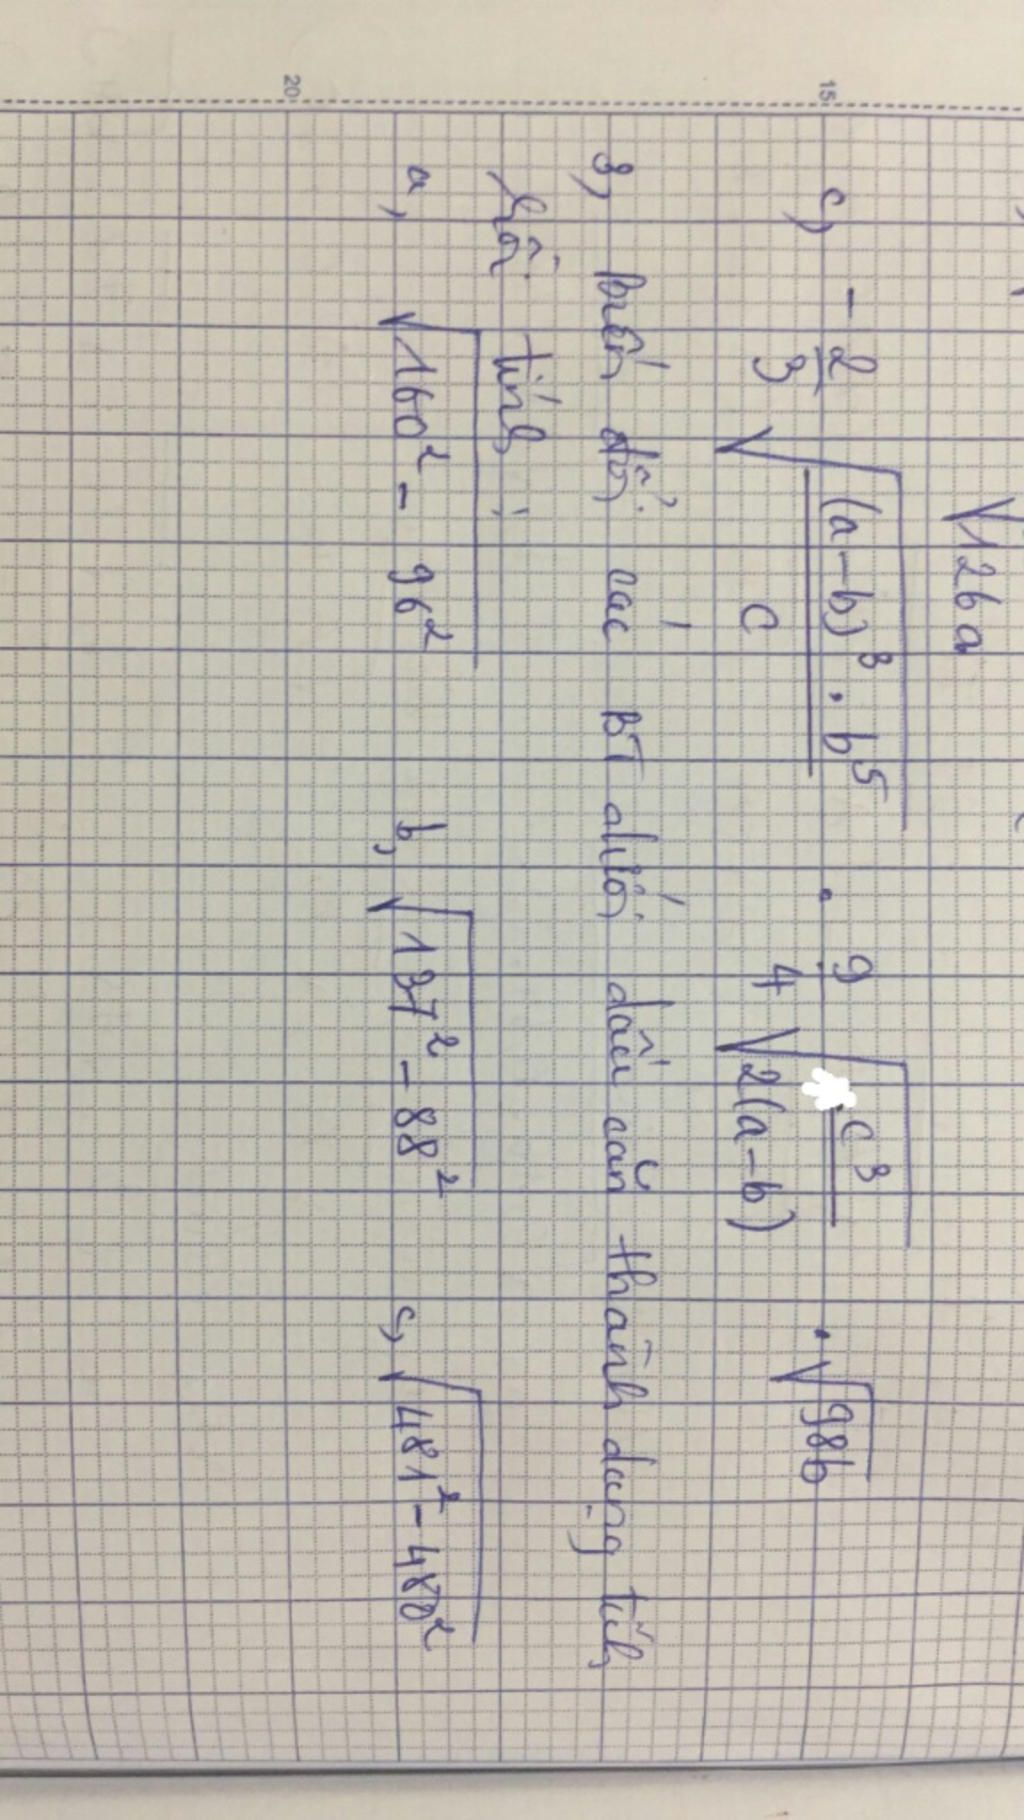 √126a
15
c, - 2/3 √((a-b)³ . b⁵ / c) . 9/4 √(c³ / 2(a-b)) . √98b
3, biến đổi các BT dưới dấu căn thành dạng tích
rồi tính:
a, √160² - 96² b, √137² - 88² c, √481² - 480²
20